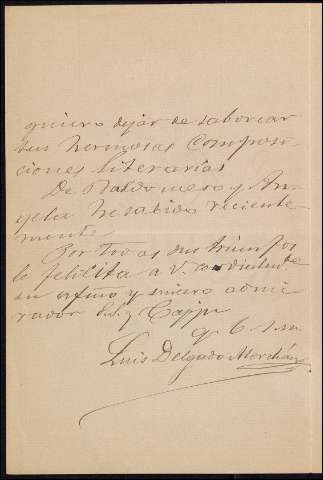 quiero dejar de saborear
sus hermosas composi-
ciones literarias
De Baldomero y An-
gela he sabido reciente-
mente.
Por todas sus triunfos
le felicita a V. cordialmte
su afmo y sincero admi-
rador S.S. y Capp
q. b. s. m.
Luis Delgado Merchán